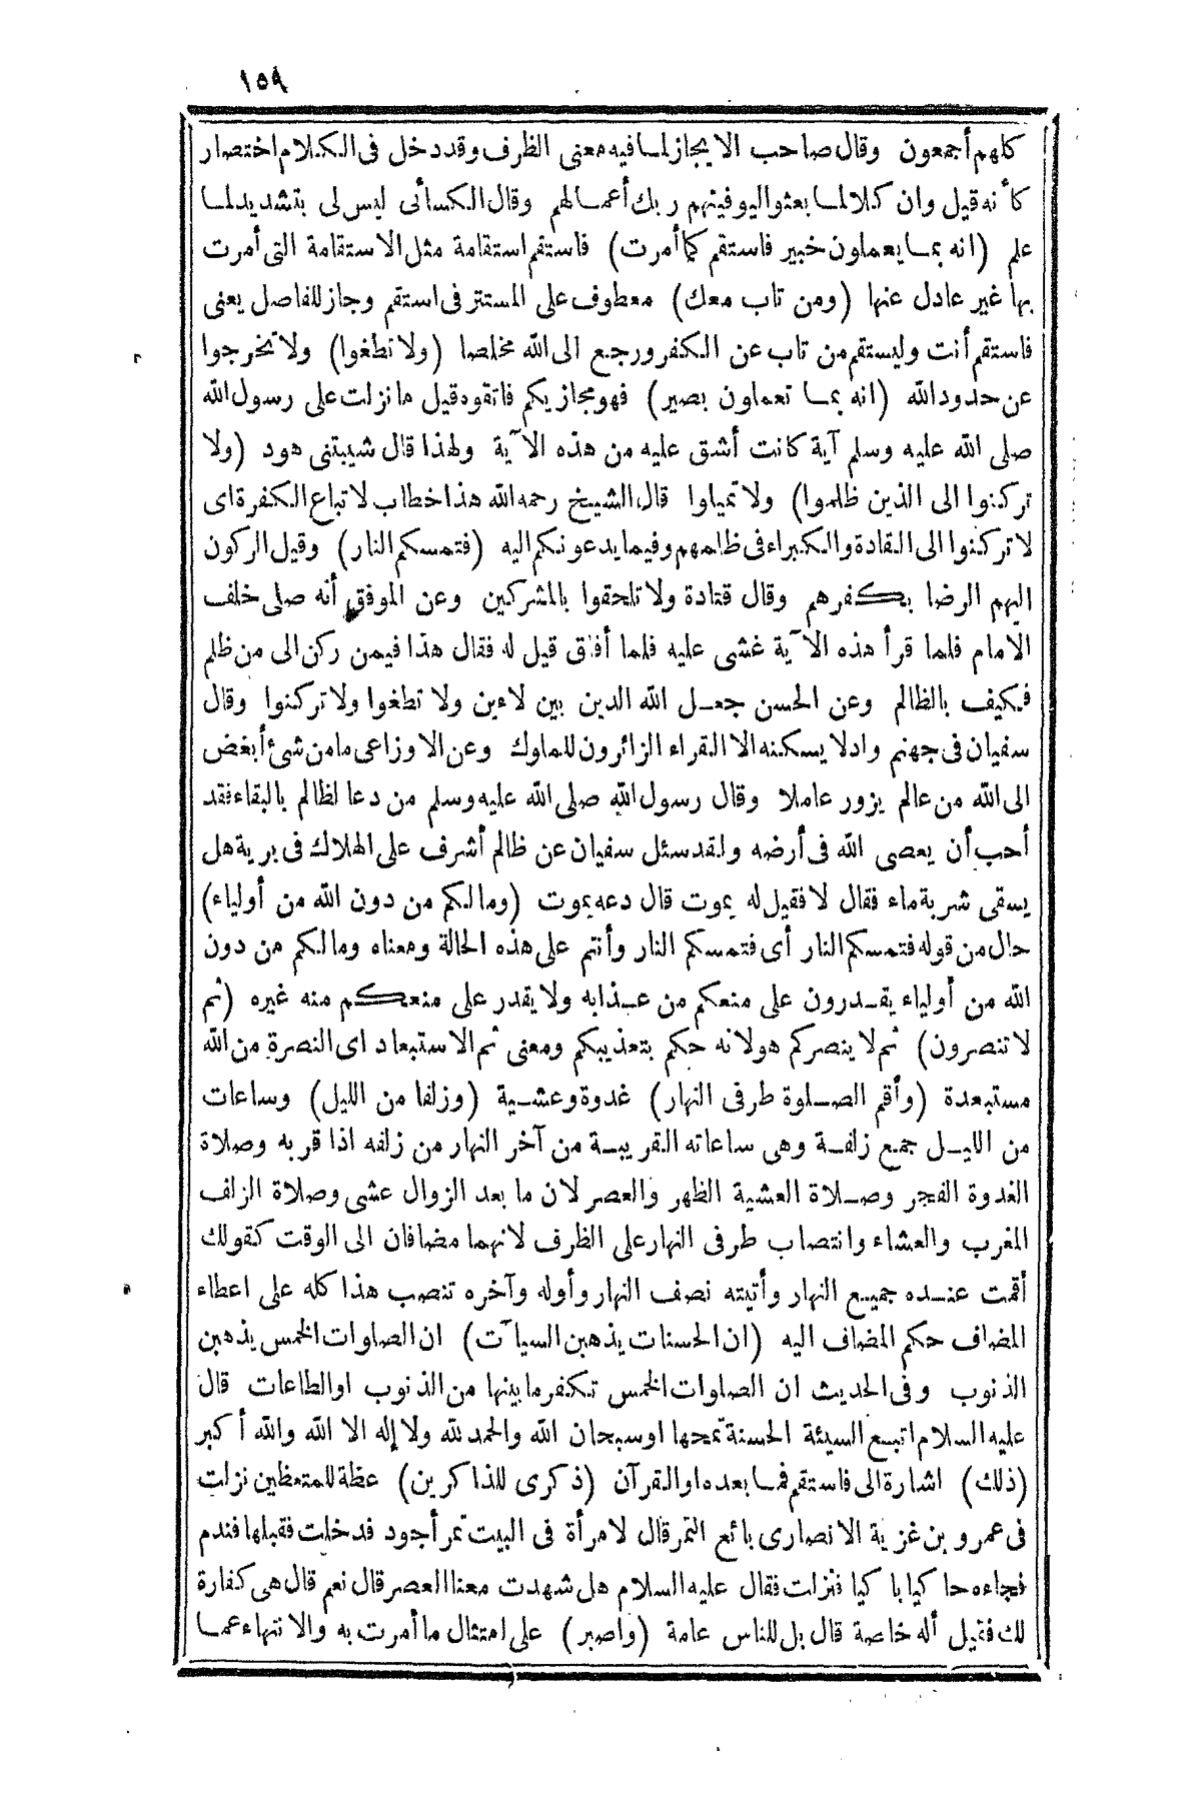 ١٥٩
كلهم أجمعون وقال صاحب الايجاز لما فيه معنى الظرف وقد دخل فى الكلام اختصار
كأنه قيل وان كلا لما بعثوا ليوفينهم ربك أعمالهم وقال الكسائى ليس لى بتشديد لما
علم (انه بما يعملون خبير فاستقم كما أمرت) فاستقم استقامة مثل الاستقامة التى أمرت
بها غير عادل عنها (ومن تاب معك) معطوف على المستتر فى استقم وجاز للفاصل يعنى
فاستقم أنت وليستقم من تاب عن الكفر ورجع الى الله مخلصا (ولا تطغوا) ولا تخرجوا
عن حدود الله (انه بما تعملون بصير) فهو مجازيكم فاتقوه قيل ما نزلت على رسول الله
صلى الله عليه وسلم آية كانت أشق عليه من هذه الآية ولهذا قال شيبتنى هود (ولا
تركنوا الى الذين ظلموا) ولا تميلوا قال الشيخ رحمه الله هذا خطاب لاتباع الكفرة اى
لا تركنوا الى القادة والكبراء فى ظلمهم وفيما يدعونكم اليه (فتمسكم النار) وقيل الركون
اليهم الرضا بكفرهم وقال قتادة ولا تلحقوا بالمشركين وعن الموفق أنه صلى خلف
الامام فلما قرأ هذه الآية غشى عليه فلما أفاق قيل له فقال هذا فيمن ركن الى من ظلم
فكيف بالظالم وعن الحسن جعل الله الدين بين لاءين ولا تطغوا ولا تركنوا وقال
سفيان فى جهنم واد لا يسكنه الا القراء الزائرون للملوك وعن الاوزاعى ما من شئ أبغض
الى الله من عالم يزور عاملا وقال رسول الله صلى الله عليه وسلم من دعا لظالم بالبقاء فقد
أحب أن يعصى الله فى أرضه ولقد سئل سفيان عن ظالم أشرف على الهلاك فى برية هل
يسقى شربة ماء فقال لا فقيل له يموت قال دعه يموت (وما لكم من دون الله من أولياء)
حال من قوله فتمسكم النار أى فتمسكم النار وأنتم على هذه الحالة ومعناه وما لكم من دون
الله من أولياء يقدرون على منعكم من عذابه ولا يقدر على منعكم منه غيره (ثم
لا تنصرون) ثم لا ينصركم هو لانه حكم بتعذيبكم ومعنى ثم الاستبعاد اى النصرة من الله
مستبعدة (وأقم الصلوة طرفى النهار) غدوة وعشية (وزلفا من الليل) وساعات
من الليل جمع زلفة وهى ساعاته القريبة من آخر النهار من زلفه اذا قربه وصلاة
الغدوة الفجر وصلاة العشية الظهر والعصر لان ما بعد الزوال عشى وصلاة الزلف
المغرب والعشاء وانتصاب طرفى النهار على الظرف لانهما مضافان الى الوقت كقولك
أقمت عنده جميع النهار وأتيته نصف النهار وأوله وآخره تنصب هذا كله على اعطاء
المضاف حكم المضاف اليه (ان الحسنات يذهبن السيآت) ان الصلوات الخمس يذهبن
الذنوب وفى الحديث ان الصلوات الخمس تكفر ما بينها من الذنوب او الطاعات قال
عليه السلام اتبع السيئة الحسنة تمحها او سبحان الله والحمد لله ولا إله الا الله والله أكبر
(ذلك) اشارة الى فاستقم فما بعده او القرآن (ذكرى للذاكرين) عظة للمتعظين نزلت
فى عمرو بن غزية الانصارى بائع التمر قال لامرأة فى البيت تمر أجود فدخلت فقبلها فندم
فجاءه حاكيا باكيا فنزلت فقال عليه السلام هل شهدت معنا العصر قال نعم قال هى كفارة
لك فقيل أله خاصة قال بل للناس عامة (واصبر) على امتثال ما أمرت به والانتهاء عما